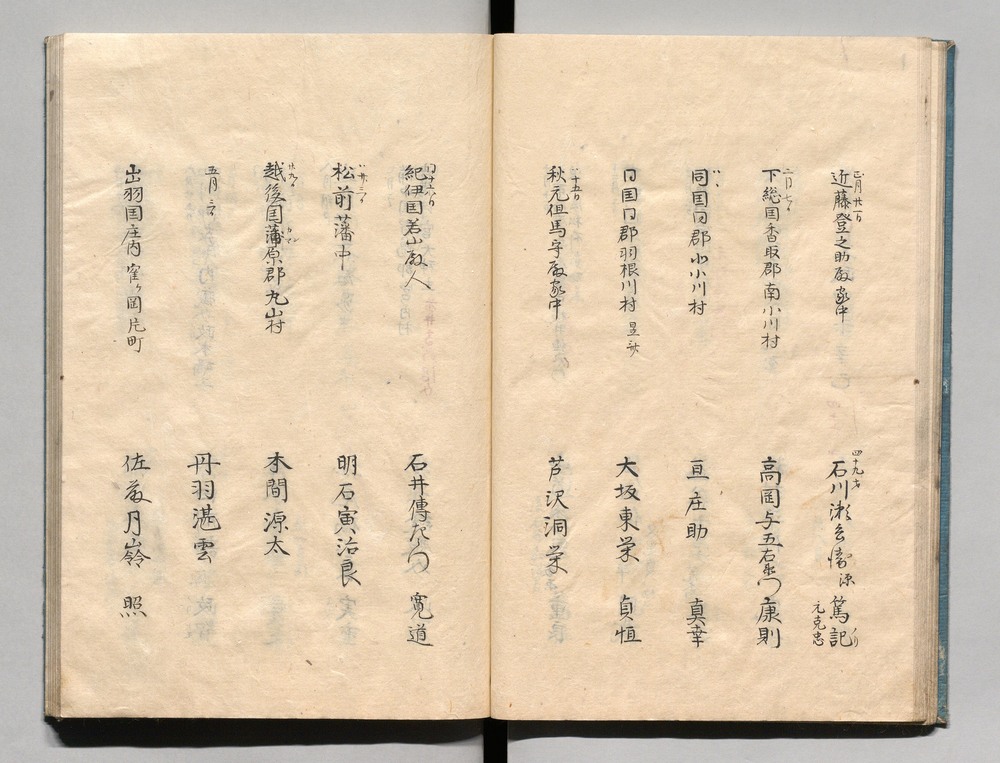 正月廿一日
近藤登之助殿家中
四十九才
石川瀬兵衛 源篤記
元克忠
二月七日
下総国香取郡南小川村
高岡与五右衛門 康則
同国同郡北小川村
亘庄助 真幸
同国同郡羽根川村
大坂東栄 貞恒
十五日
秋元但馬守殿家中
芦沢洞栄
十六日
紀伊国若山殿人
石井傳左衛門 寛道
廿三日
松前藩中
明石寅治良
廿九日
越後国蒲原郡丸山村
本間源太
五月三日
丹羽湛雲
出羽国庄内窪ヶ岡片町
佐藤月嶺 照